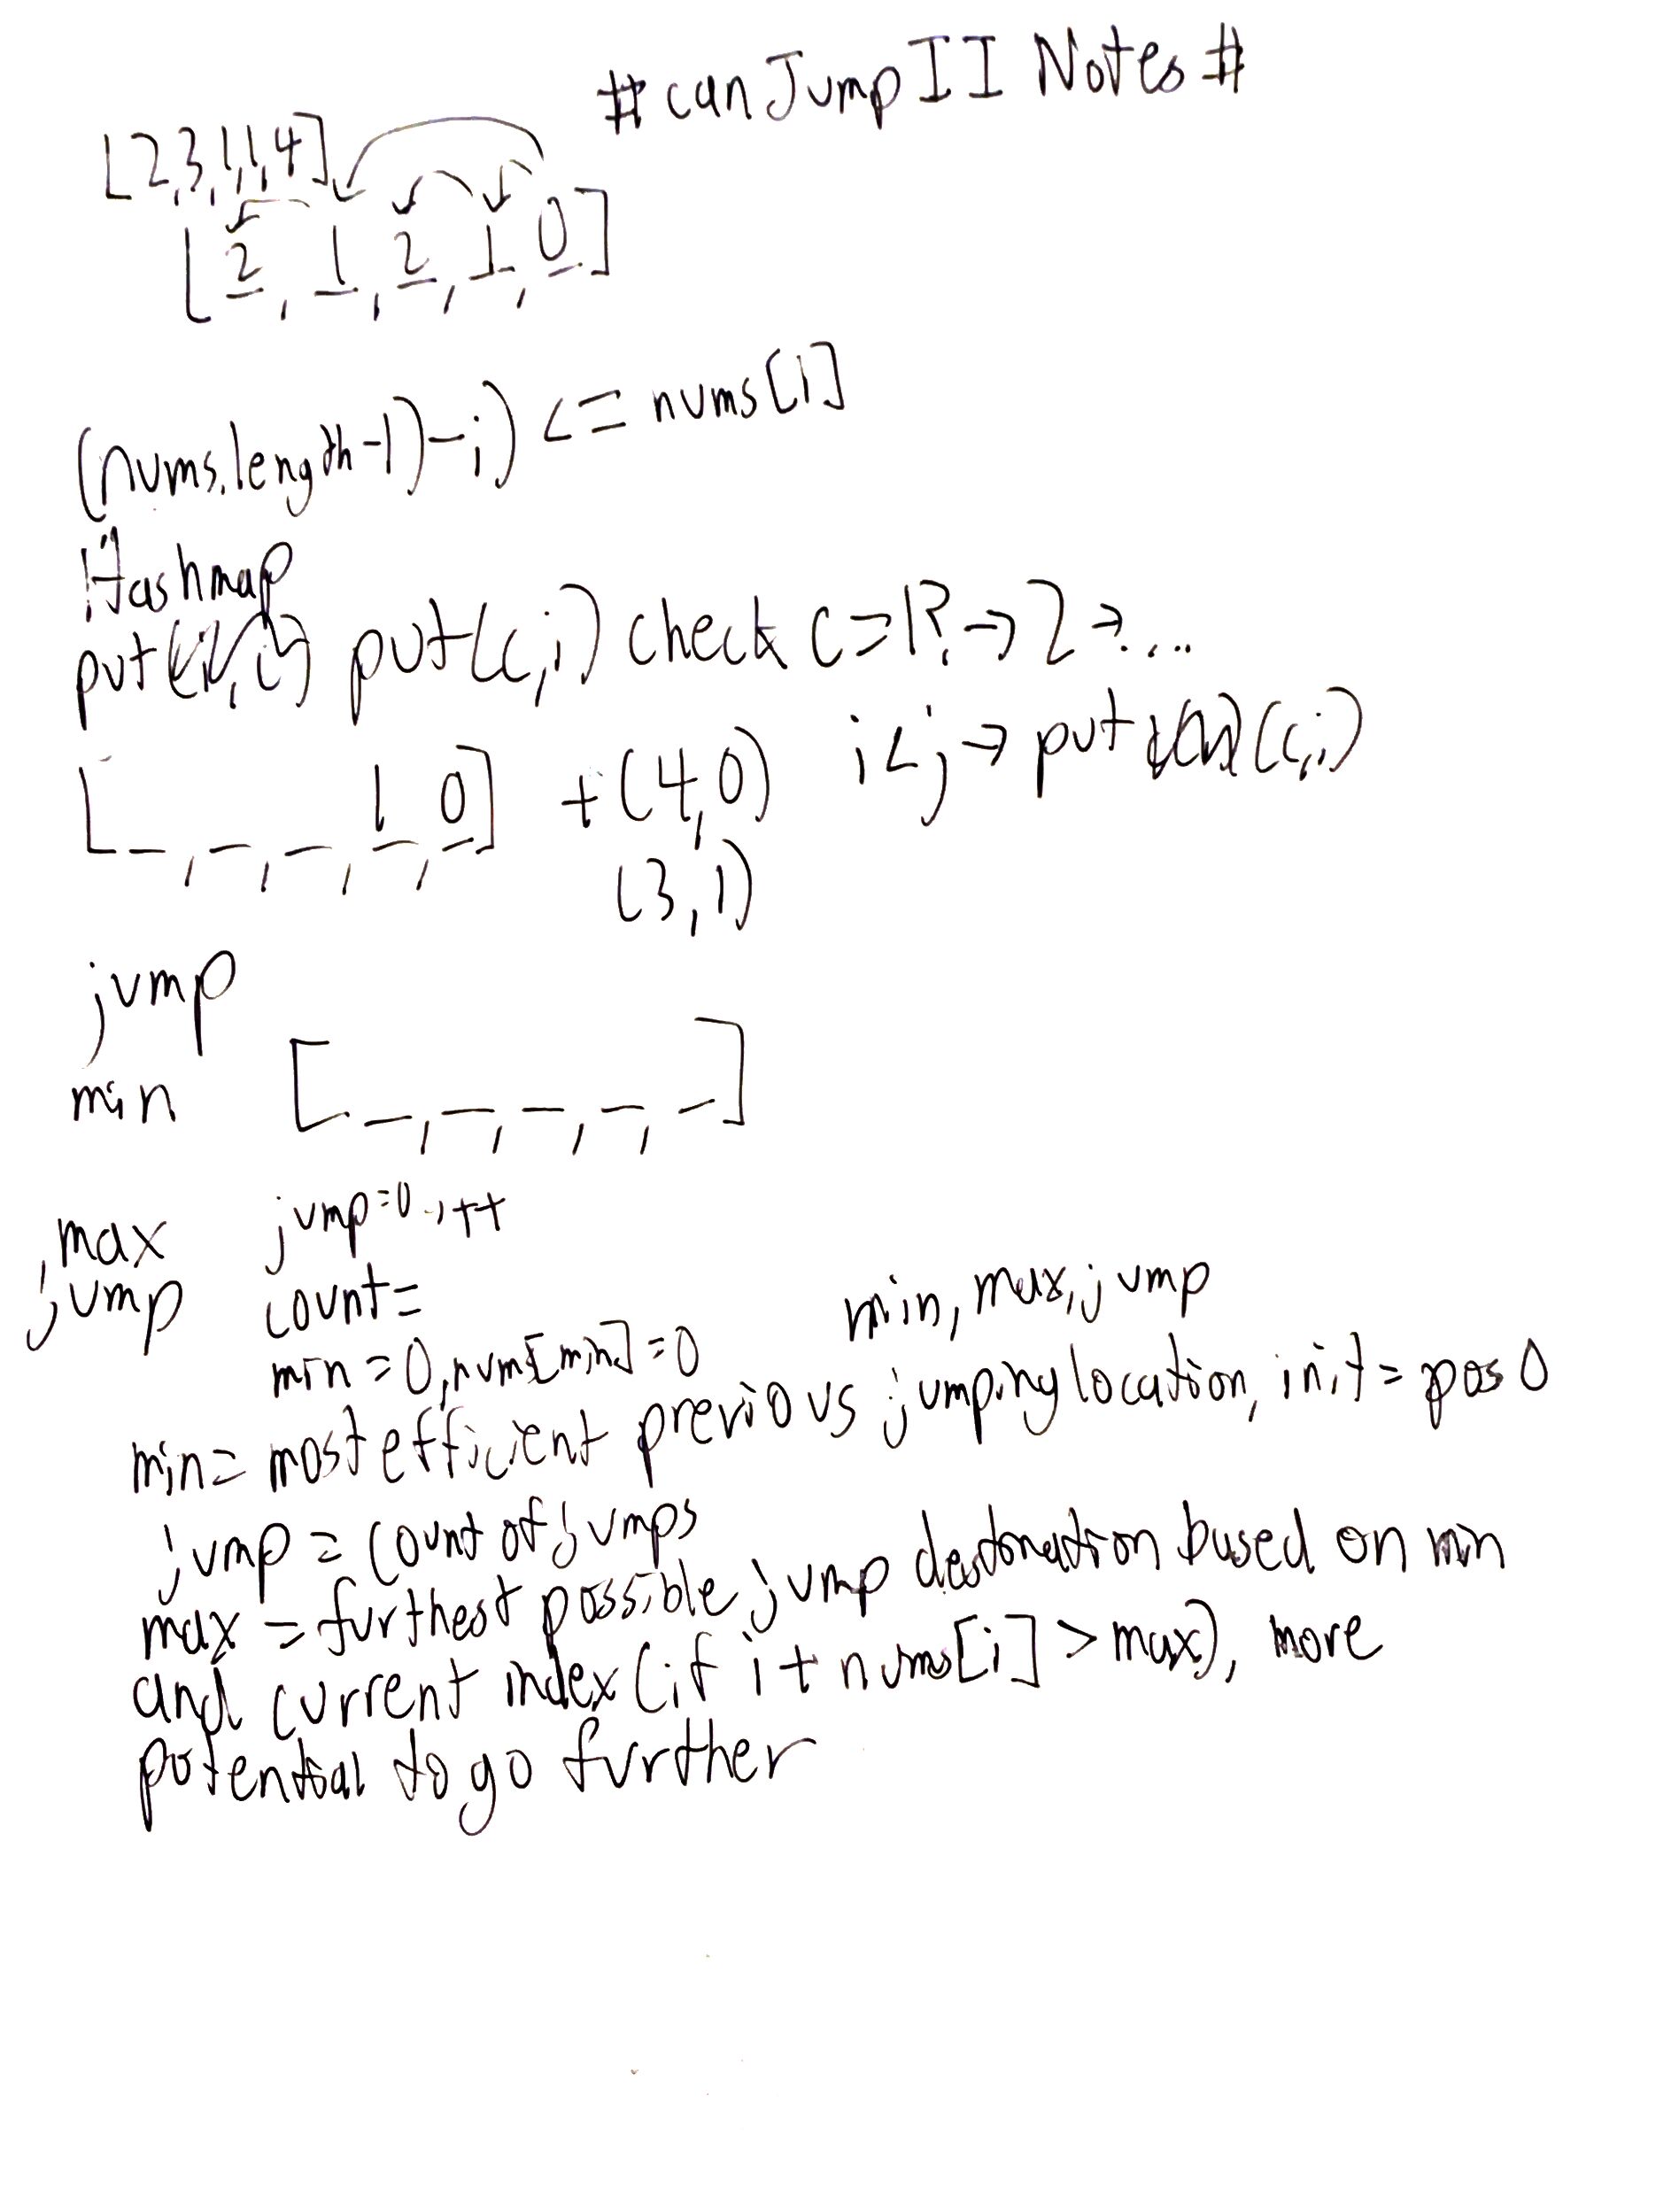 #canJumpII Notes#
[2,3,1,1,4]
[2, 1, 2, 1, 0]
(nums.length-1)-i) <= nums[i]
Hashmap
put( put(c,i) check c=1?→2→...
i<j→put (c,i)
[_,_,_,1,0] +(4,0)
(3,1)
jump
min [_,_,_,_,_]
max jump=0 ++
jump count=
min, max, jump
min=0,nums[min]=0
min= most efficient previous jumping location, init= pos 0
jump = count of jumps
max = furthest possible jump destination based on min
and current index (if i+nums[i]>max), more
potential to go further